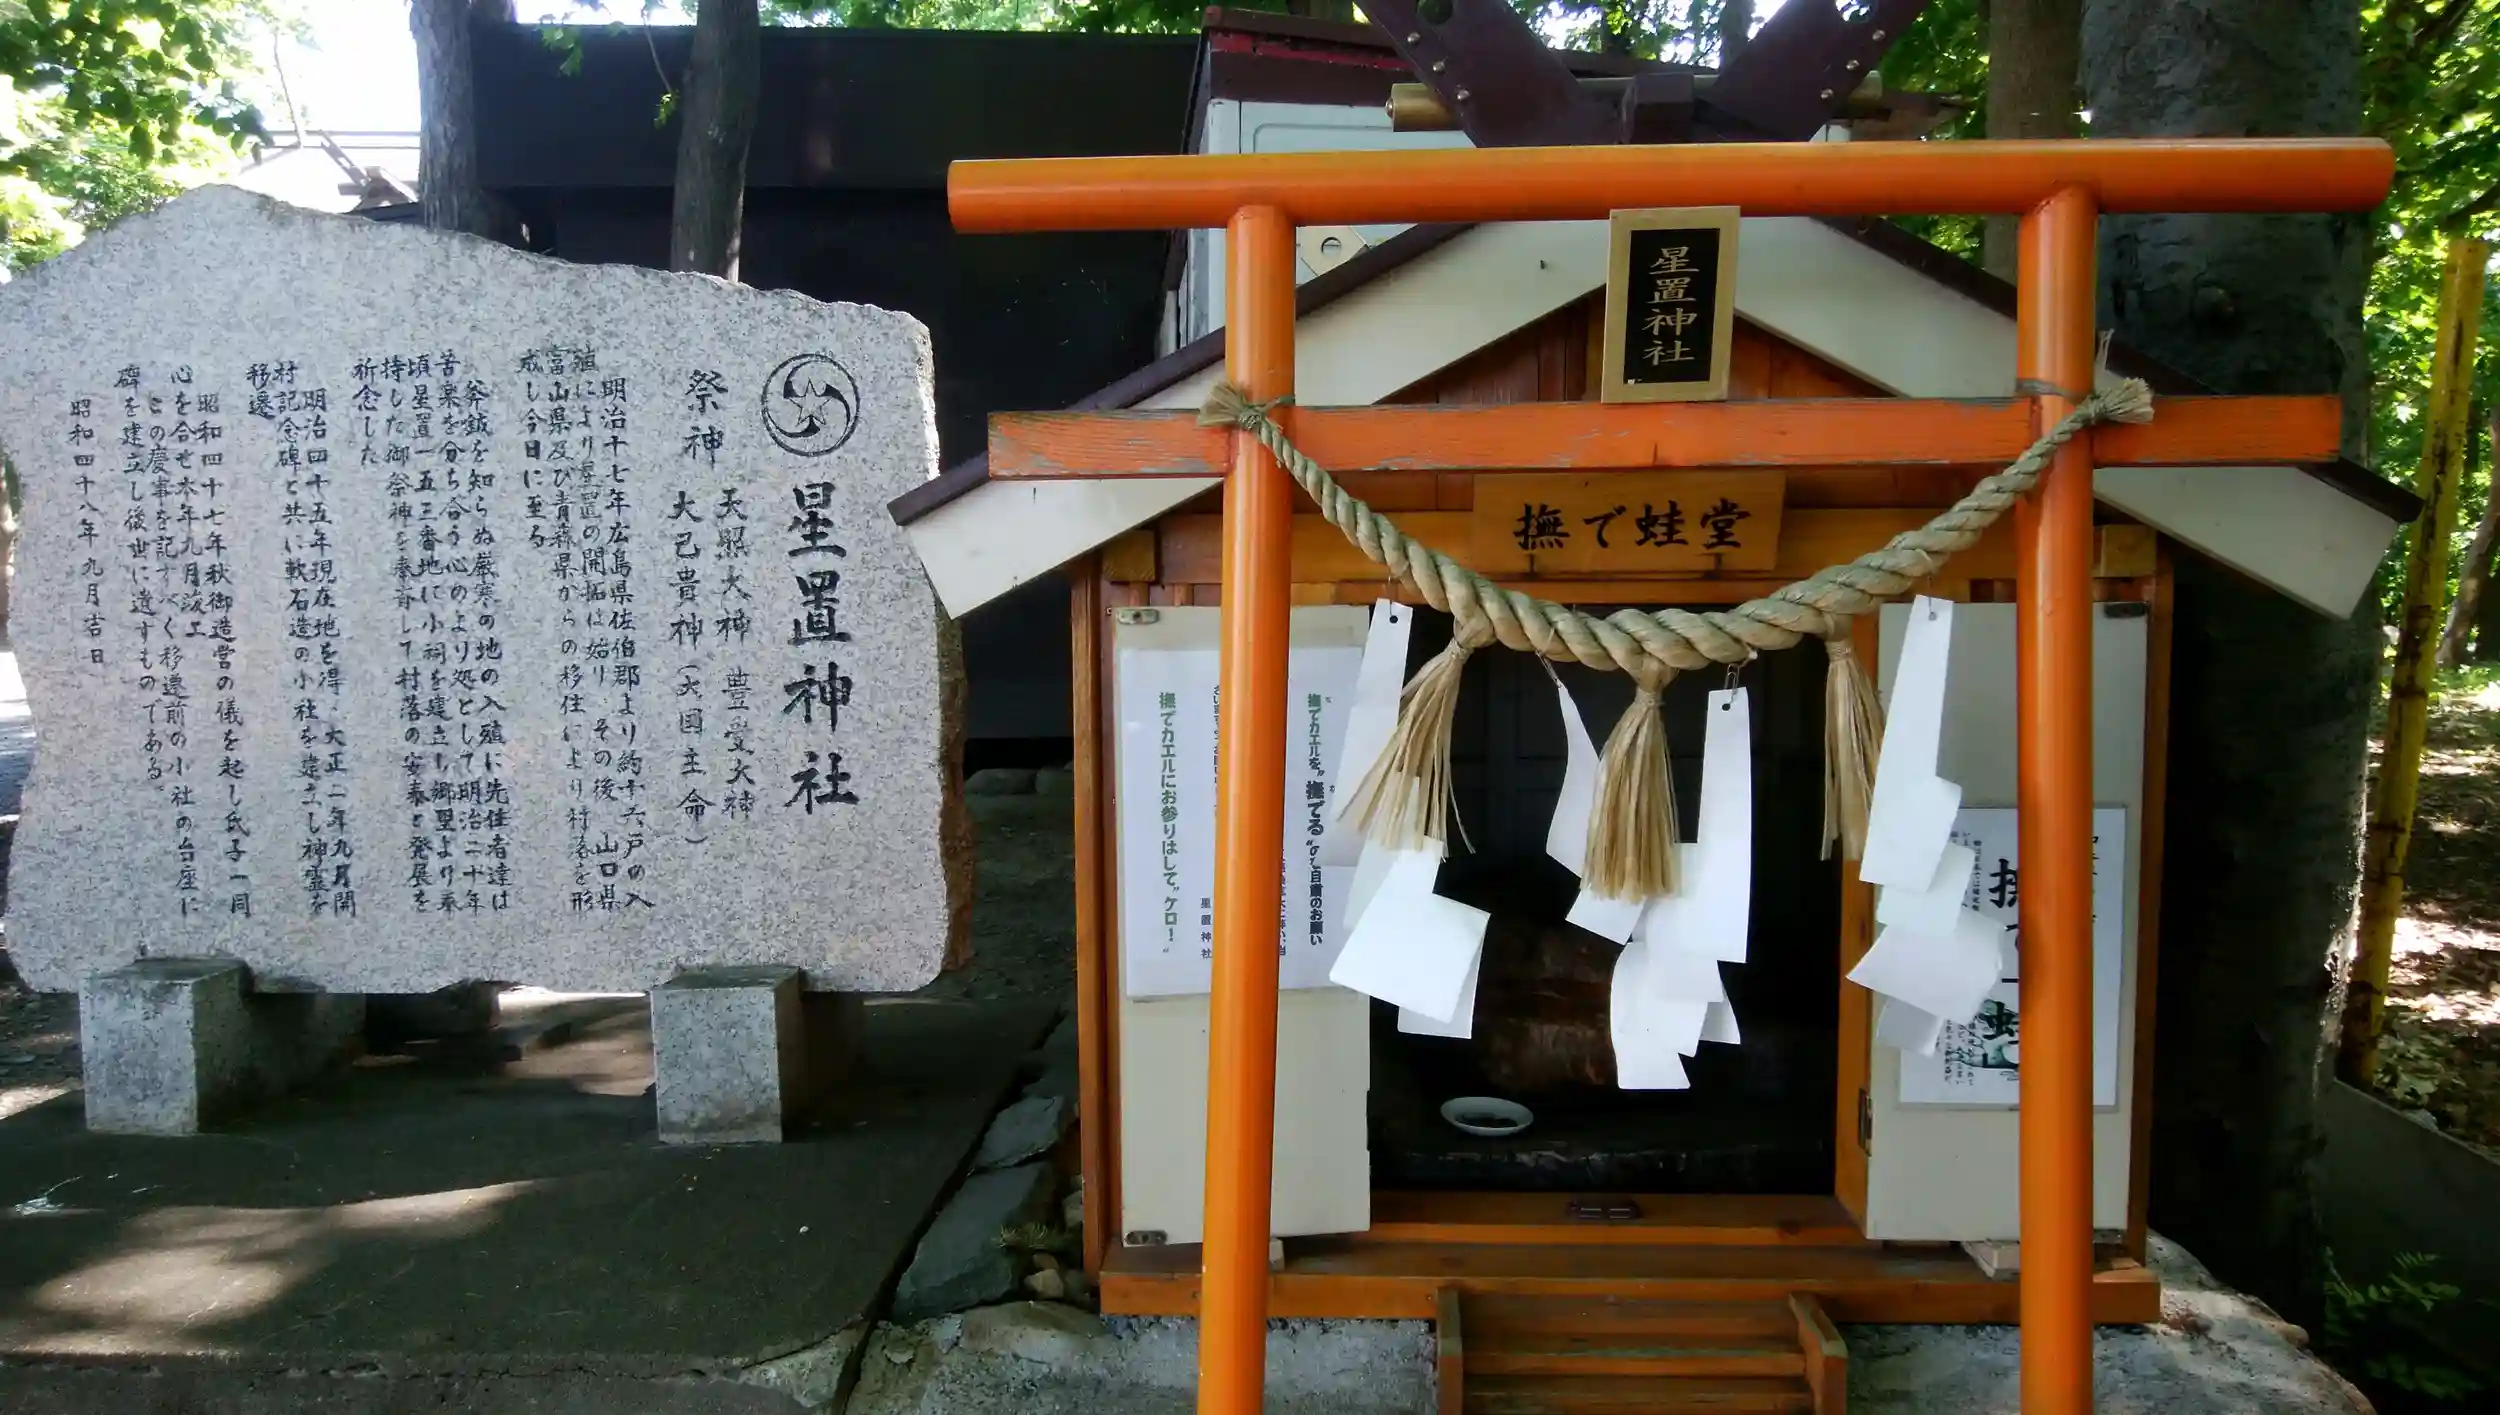 星置神社
祭神
天照大神 豊受大神
大己貴神(大国主命)
明治十七年広島県佐伯郡より約十六戸の入
殖により星置の開拓は始り、その後、山口県
富山県及び青森県からの移住により村落を形
成し今日に至る
斧鉞を知らぬ厳寒の地の入殖に先住者達は
苦楽を分ち合う心のより処として明治二十年
頃星置一五三番地に小祠を建立し郷里より奉
持した御祭神を奉斎して村落の安泰と発展を
祈念した
明治四十五年現在地を得、大正二年九月開
村記念碑と共に軟石造の小社を建立し神霊を
移遷
昭和四十七年秋御造営の儀を起し氏子一同
心を合せ本年九月竣工
この慶事を記すべく移遷前の小社の台座に
碑を建立し後世に遺すものである。
昭和四十八年九月吉日
星置神社
撫で蛙堂
撫でカエルを〝撫でる〟自粛のお願い
星置神社
撫でカエルにお参りはして〝ケロ!〟
撫で